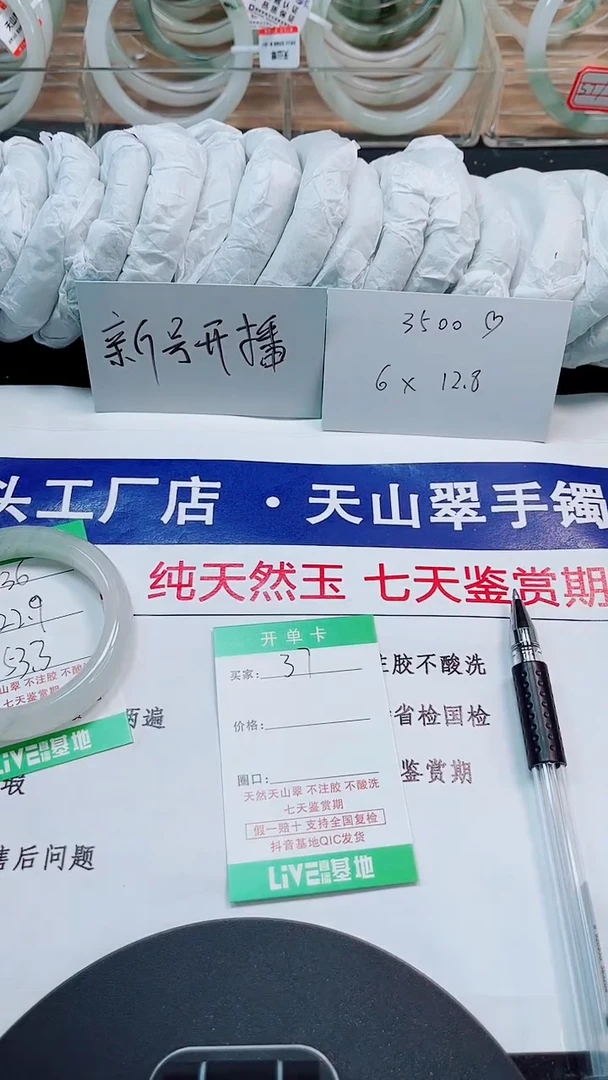 质保认证
天山翠
新号开播
3500♡
6 x 12.8
头工厂店·天山翠手镯
纯天然玉 七天鉴赏期
36
22.9
53.3
山翠 不注胶 不酸洗
七天鉴赏期
LiVE直播基地
开单卡
买家:37
价格:
圈口:
天然天山翠 不注胶 不酸洗
七天鉴赏期
假一赔十 支持全国复检
抖音基地QIC发货
LiVE直播基地
注胶不酸洗
两遍
省检国检
瑕
鉴赏期
售后问题